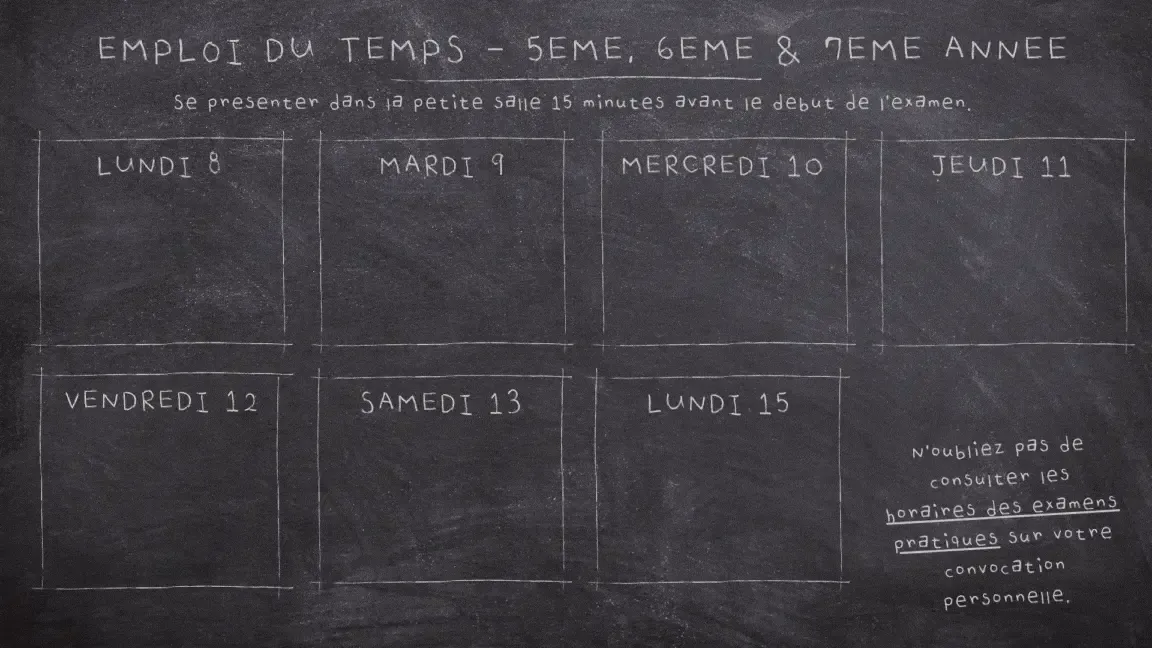 EMPLOI DU TEMPS - 5EME, 6EME & 7EME ANNEE
Se presenter dans la petite salle 15 minutes avant le debut de l'examen.
LUNDI 8
MARDI 9
MERCREDI 10
JEUDI 11
VENDREDI 12
SAMEDI 13
LUNDI 15
N'oubliez pas de
consulter les
horaires des examens
pratiques sur votre
convocation
personnelle.